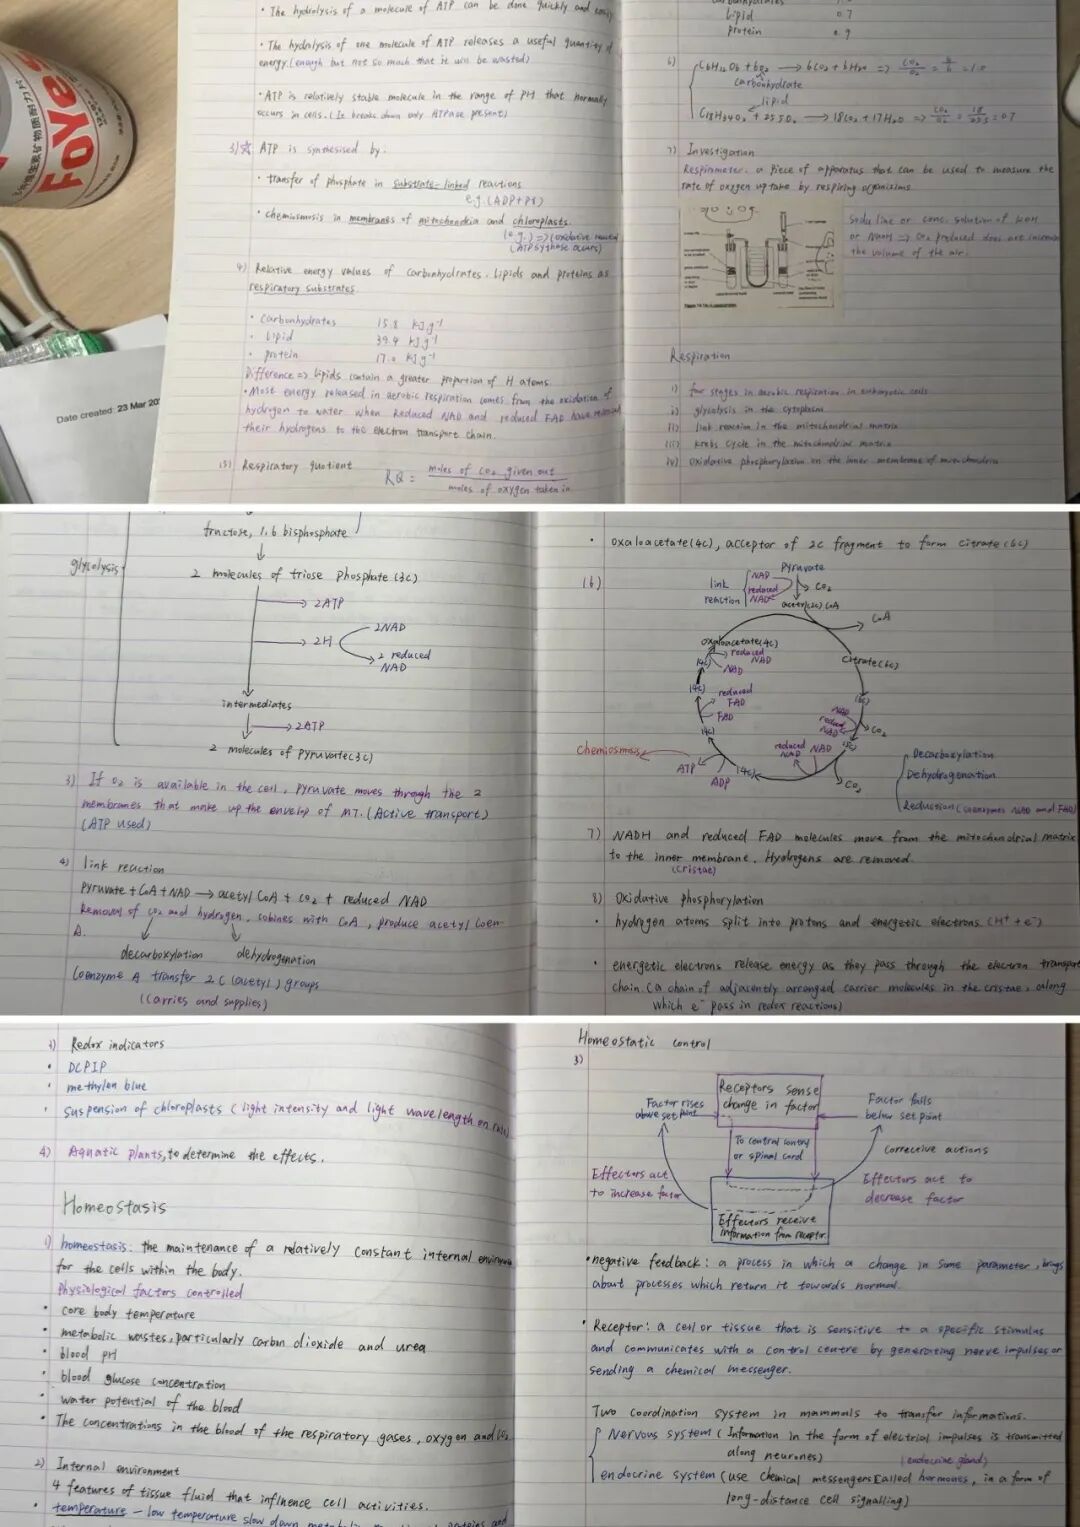 FoYes
Date created: 23 Mar 20
· The hydrolysis of a molecule of ATP can be done quickly and easily
· The hydolysis of one molecule of ATP releases a useful quantity of
energy. (enough but not so much that it will be wasted)
· ATP is relatively stable molecule in the range of PH that normally
occurs in cells. (It breaks down only ATPase present)
3) ATP is synthesised by.
· transfer of phosphate in substrate-linked reactions
e.g. (ADP+Pi)
· chemiosmosis in membranes of mitochondria and chloroplasts.
(ATPsynthase occurs)
4) Relative energy values of carbonhydrates. Lipids and proteins as
respiratory substrates.
· carbonhydrates 15.8 kJg⁻¹
· Lipid 39.4 kJg⁻¹
· protein 17.0 kJg⁻¹
Difference => Lipids contain a greater proportion of H atoms.
· Most energy released in aerobic respiration comes from the oxidation of
hydrogen to water when Reduced NAD and reduced FAD have
their hydrogens to the electron transport chain.
(5) Respiratory quotient RQ = moles of CO₂ given out
moles of oxygen taken in
Lipid 0.7
protein 0.9
6) C6H12O6 + 6O2 → 6CO2 + 6H2O => CO₂/O₂ = 6/6 = 1.0
carbonhydrate
lipid
C18H34O2 + 25.5O2 → 18CO2 + 17H2O => CO₂/O₂ = 18/25.5 = 0.7
7) Investigation
Respirometer. a piece of apparatus that can be used to measure the
rate of oxygen uptake by respiring organisims.
Soda lime or conc. solution of KOH
or NaOH => CO₂ produced does are increase
the volume of the air.
Respiration
1) four stages in aerobic respiration in eukaryotic cells
i) glycolysis in the cytoplasm
ii) link reaction in the mitochondrial matrix
iii) krebs cycle in the mitochondrial matrix
iv) oxidative phosphorylation on the inner membrane of mitochondria
glycolysis
fructose, 1,6 bisphosphate
2 molecules of triose phosphate (3C)
2ATP
2H
2NAD
2 reduced
NAD
intermediates
2ATP
2 molecules of pyruvate (3C)
3) If O₂ is available in the cell, pyruvate moves through the 2
membranes that make up the envelop of MT. (Active transport)
(ATP used)
4) link reaction
Pyruvate + CoA + NAD → acetyl CoA + CO₂ + reduced NAD
Removal of CO₂ and hydrogen, cobines with CoA, produce acetyl Coen
A.
decarboxylation dehydrogenation
Coenzyme A transfer 2C (acetyl) groups
(carries and supplies)
· oxaloacetate(4C), acceptor of 2C fragment to form citrate (6C)
(6)
link
reaction
NAD
reduced
NAD
Pyruvate
CO₂
acetyl(2C) CoA
CoA
oxaloacetate(4C)
Citrate(6C)
reduced
NAD
NAD
(4C)
(4C)
reduced
FAD
FAD
(4C)
NAD
reduced
NAD
CO₂
(5C)
reduced
NAD
NAD
CO₂
(4C)
Chemiosmosis
ATP
ADP
Decarboxylation
Dehydrogenation
Reduction (coenzymes NAD and FAD)
7) NADH and reduced FAD molecules move from the mitochondrial matrix
to the inner membrane. Hydrogens are removed.
(cristae)
8) Oxidative phosphorylation
· hydrogen atoms split into protons and energetic electrons (H⁺ + e⁻)
· energetic electrons release energy as they pass through the electron transport
chain. (a chain of adjacently arranged carrier molecules in the cristae, along
which e⁻ pass in redox reactions)
3) Redox indicators
· DCPIP
· methylen blue
· suspension of chloroplasts (light intensity and light wavelength on rate)
4) Aquatic plants, to determine the effects.
Homeostasis
1) homeostasis: the maintenance of a relatively constant internal environ
for the cells within the body.
Physiological factors controlled
· core body temperature
· metabolic wastes, particularly carbon dioxide and urea
· blood pH
· blood glucose concentration
· water potential of the blood
· The concentrations in the blood of the respiratory gases, oxygen and CO₂
2) Internal environment
4 features of tissue fluid that influence cell activities.
· temperature - low temperature slow down
Homeostatic control
3)
Receptors sense
change in factor
Factor rises
above set point
Factor falls
below set point
To central contry
or spinal cord
corrective actions
Effectors act
to increase factor
Effectors act to
decrease factor
Effectors receive
information from receptor
· negative feedback: a process in which a change in some parameter, brings
about processes which return it towards normal.
· Receptor: a cell or tissue that is sensitive to a specific stimulus
and communicates with a control centre by generating nerve impulses or
sending a chemical messenger.
Two coordination system in mammals to transfer informations.
Nervous system (Information in the form of electrial impulses is transmitted
along neurones) (endocrine gland)
endocrine system (use chemical messengers called hormones, in a form of
long-distance cell signalling)